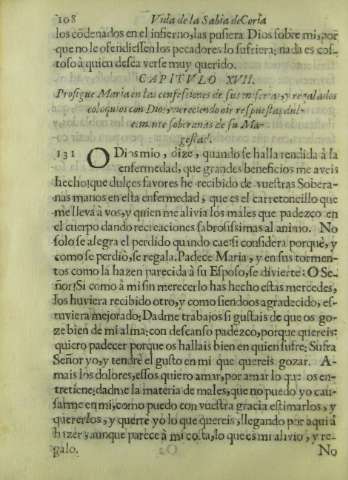 108 Vida de la Sabia de Coria
los cõdenados en el infierno, las pusiera Dios sobre mi, por
que no le ofendiessen los pecadores lo sufriera; nada es cos-
toso à quien desea verse muy querido.
CAPITVLO XVII.
Prosigue Maria en las confessiones de sus miserias, y regalados
coloquios con Dios, mereciendo oir respuestas dul-
cemente soberanas de su Ma-
gestad.
131 O Dios mio, dize, quando se halla rendida à la
enfermedad, que grandes beneficios me aveis
hecho; que dulçes favores he recibido de vuestras Sobera-
nas manos en esta enfermedad, que es el carretoncillo que
me lleva à vos, y quien me alivia los males que padezco en
el cuerpo dando recreaciones sabrosissimas al animo. No
solo se alegra el perdido quando cae si considera porquè, y
como se perdiò, se regala. Padece Maria, y en sus tormen-
tos como la hazen parecida à su Esposo, se divierte: O Se-
ñor! Si como à mi sin merecerlo has hecho estas mercedes,
los huviera recibido otro, y como siendoos agradecido, es-
tuviera mejorado; Dadme trabajos si gustais de que os go-
ze bien de mi alma; con descanso padezco, porque quereis:
quiero padecer porque os hallais bien en quien sufre; Sufra
Señor yo, y tendrè el gusto en mi que quereis gozar. A-
mais los dolores, essos quiero amar, por amar lo que os en-
tretiene; dadme la materia de males, que no puedo yo cau-
sarme en mi, como puedo con vuestra gracia estimarlos, y
quererlos, y querre yo lo que quereis, llegando por aqui à
hazer, aunque parece à mi costa, lo que es mi alivio, y re-
galo. O2 No